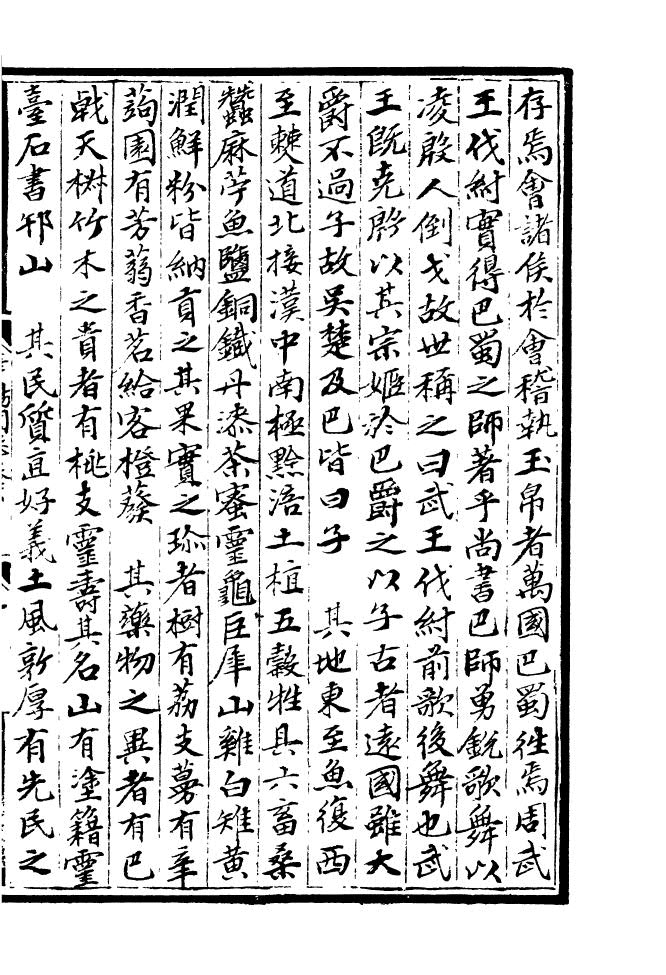 存焉會諸侯於會稽執玉帛者萬國巴蜀徃焉周武
王伐紂實得巴蜀之師著乎尚書巴師勇銳歌舞以
凌殷人倒戈故世稱之曰武王伐紂前歌後舞也武
王旣克殷以其宗姬於巴爵之以子古者遠國雖大
爵不過子故吳楚及巴皆曰子　其地東至魚復西
至僰道北接漢中南極黔涪土植五穀牲具六畜桑
蠶麻苧魚鹽銅鐵丹漆茶蜜靈龜巨犀山雞白雉黃
潤鮮粉皆納貢之其果實之珎者樹有荔支蔓有辛
蒟園有芳蒻香茗給客橙葵　其藥物之異者有巴
戟天椒竹木之貴者有桃支靈壽其名山有塗籍靈
臺石書邗山　其民質直好義土風敦厚有先民之